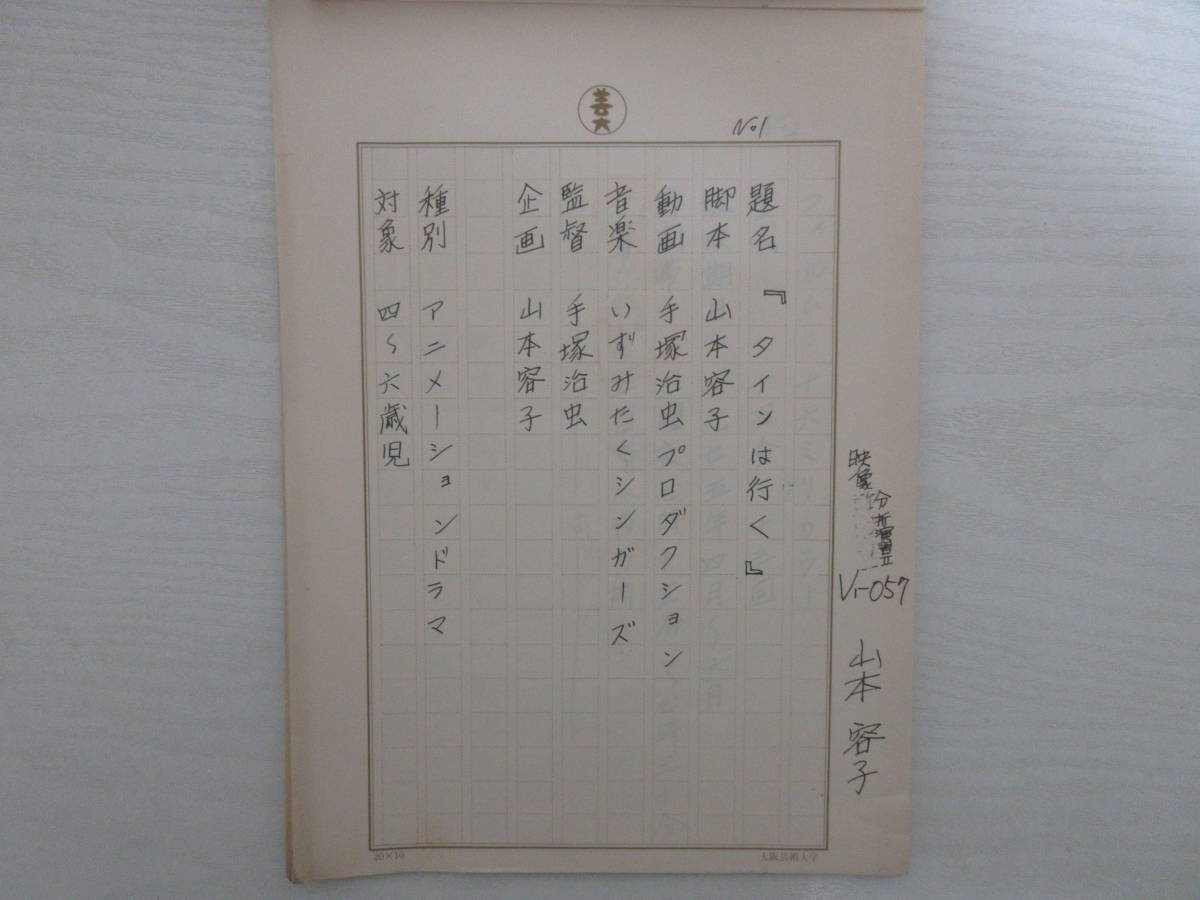 映像分析演習Ⅱ
V1-057
山本容子
芸大
No1
題名『タインは行く』
脚本 山本容子
動画 手塚治虫プロダクション
音楽 いずみたくシンガーズ
監督 手塚治虫
企画 山本容子
種別 アニメーションドラマ
対象 四〜六歳児
20×10
大阪芸術大学